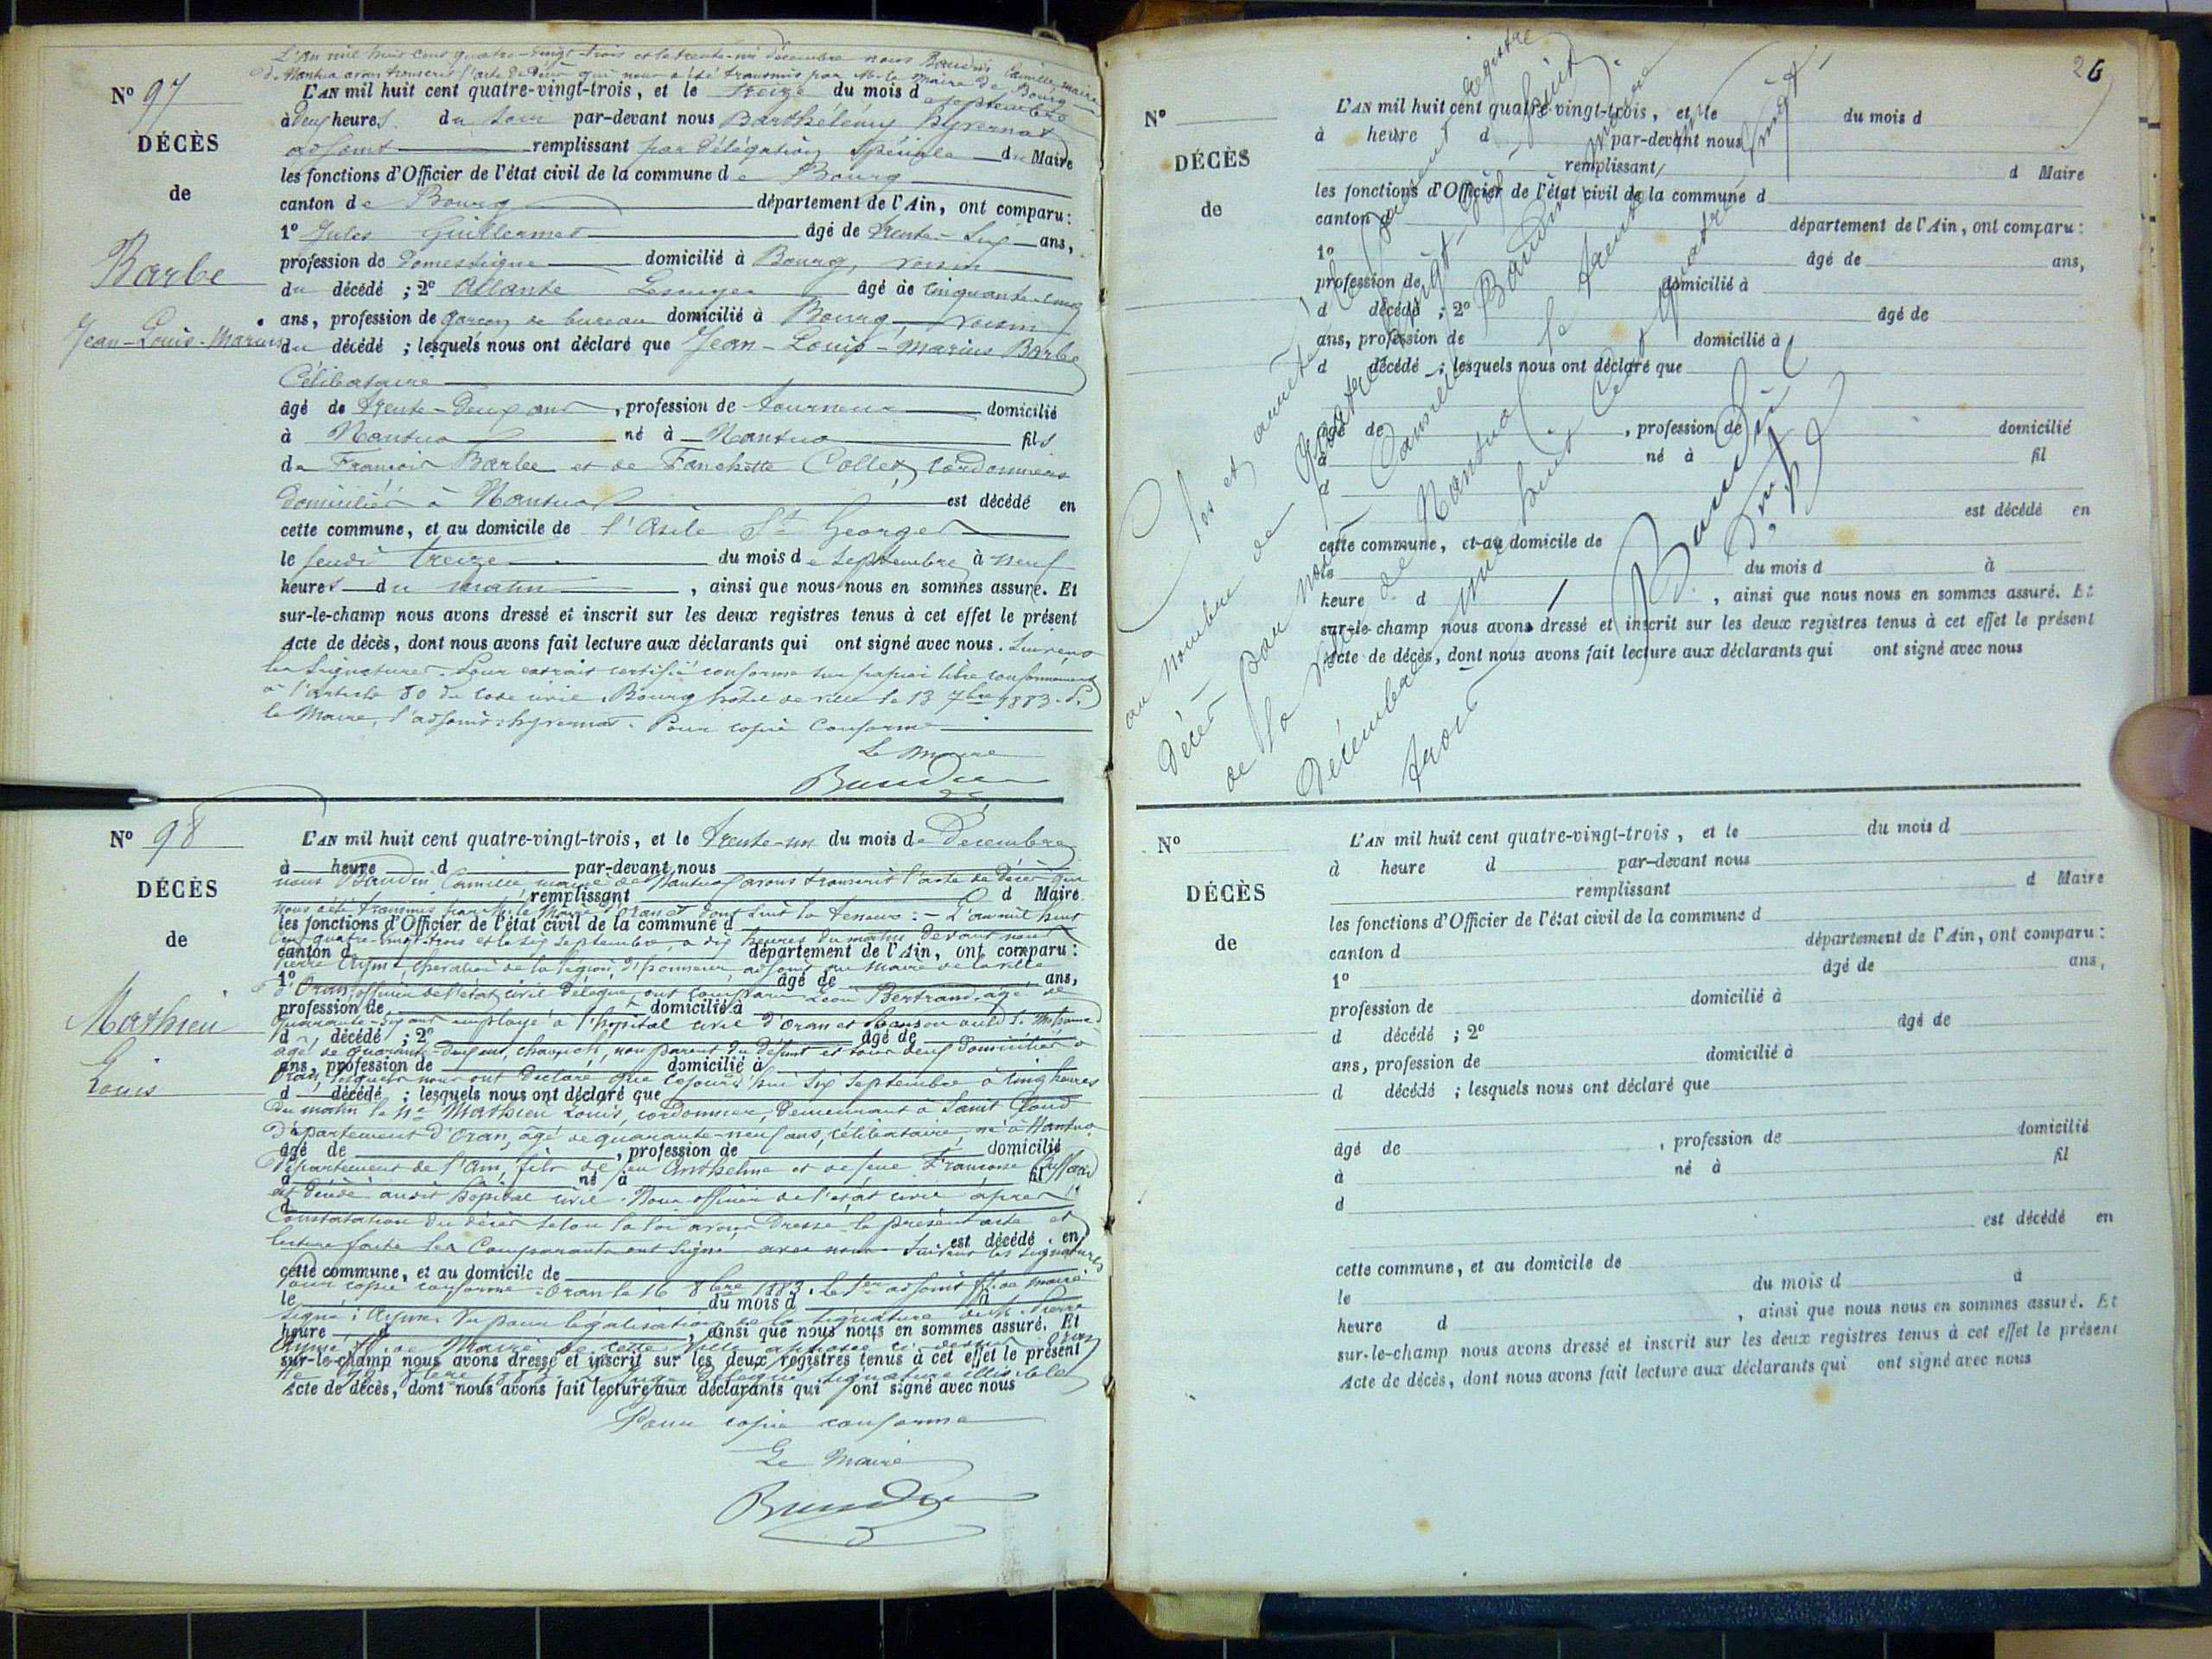 L'An mil huit cent quatre-vingt-trois et le trente-un décembre nous Baudin Camille, maire
de Nantua avons transcrit l'acte de Décès qui nous a été transmis par M. le Maire de Bourg
N° 97
L'AN mil huit cent quatre-vingt-trois, et le treize du mois de septembre
à deux heures du soir par-devant nous Barthélémy hyvernat
DÉCÈS
adjoint remplissant par délégation Spéciale du Maire
les fonctions d'Officier de l'état civil de la commune de Bourg
de
canton de Bourg département de l'Ain, ont comparu :
1° Jules Guillermet âgé de trente-six ans,
Barbe
profession de domestique domicilié à Bourg, voisin
du décédé ; 2° Allante âgé de cinquante-cinq
ans, profession de garçon de bureau domicilié à Bourg voisin
Jean-Louis-Marius
du décédé ; lesquels nous ont déclaré que Jean-Louis-Marius Barbe
Célibataire
âgé de trente-deux ans, profession de tourneur domicilié
à Nantua né à Nantua fils
de François Barbe et de Fanchette Collet, cordonniers
domiciliés à Nantua est décédé en
cette commune, et au domicile de l'Asile St Georges
le jeudi treize du mois de septembre à neuf
heures du matin, ainsi que nous nous en sommes assuré. Et
sur-le-champ nous avons dressé et inscrit sur les deux registres tenus à cet effet le présent
Acte de décès, dont nous avons fait lecture aux déclarants qui ont signé avec nous. Suivent
les Signatures. Pour extrait certifié conforme sur papier libre conformément
à l'article 80 du code civil. Bourg hôtel de ville le 13 7bre 1883. P.
le Maire, l'adjoint : hyvernat. Pour copie Conforme
Le Maire
Baudin
N° 98
L'AN mil huit cent quatre-vingt-trois, et le trente-un du mois de Décembre
à heure d par-devant nous
nous Baudin Camille, maire de Nantua avons transcrit l'acte de décès qui
DÉCÈS
remplissant d Maire
nous a été transmis par M. le Maire d'Oran et dont suit la teneur : - L'an mil huit
les fonctions d'Officier de l'état civil de la commune d
cent quatre-vingt-trois et le six septembre, à dix heures du matin devant nous
de
canton d département de l'Ain, ont comparu :
Pierre Aymé, chevalier de la légion d'honneur, adjoint au Maire de la ville
1° âgé de ans,
d'Oran, officier de l'état civil délégué ont comparu Léon Bertrand, âgé de
profession de domicilié à
Mathieu
quarante-six ans employé à l'hôpital civil d'Oran et
d décédé ; 2° âgé de
âgé de quarante-deux ans, non parents du défunt et tous deux domiciliés à
Louis
ans, profession de domicilié à
Oran, lesquels nous ont déclaré que cejourd'hui six septembre à cinq heures
d décédé ; lesquels nous ont déclaré que
du matin le Né Mathieu Louis, cordonnier, demeurant à Saint Cloud
département d'Oran, âgé de quarante-neuf ans, célibataire, né à Nantua
âgé de , profession de domicilié
département de l'Ain, fils de feu Anthelme et de feue Françoise
à né à fil
est décédé audit hôpital civil. Nous officier de l'état civil après
d
Constatation du décès selon la loi avons dressé le présent acte et
lecture faite les Comparants ont signé avec nous Suivent les signatures
est décédé en
cette commune, et au domicile de
Pour copie conforme : Oran le 16 8bre 1883. Le 1er adjoint ff. de maire
le du mois d à
signé : Aymé. Vu pour légalisation de la signature de M. Pierre
heure d , ainsi que nous nous en sommes assuré. Et
Aymé ff. de Maire de cette ville apposée ci-dessus Oran
sur-le-champ nous avons dressé et inscrit sur les deux registres tenus à cet effet le présent
signature illisible
Acte de décès, dont nous avons fait lecture aux déclarants qui ont signé avec nous
Pour copie conforme
Le Maire
Baudin
26
N°
L'AN mil huit cent quatre-vingt-trois, et le du mois d
à heure d par-devant nous
DÉCÈS
remplissant d Maire
les fonctions d'Officier de l'état civil de la commune d
de
canton d département de l'Ain, ont comparu :
1° âgé de ans,
profession de domicilié à
d décédé ; 2° âgé de
ans, profession de domicilié à
d décédé ; lesquels nous ont déclaré que
âgé de , profession de domicilié
à né à fil
d
est décédé en
cette commune, et au domicile de
le du mois d à
heure d , ainsi que nous nous en sommes assuré. Et
sur-le-champ nous avons dressé et inscrit sur les deux registres tenus à cet effet le présent
Acte de décès, dont nous avons fait lecture aux déclarants qui ont signé avec nous
Clos et arrêté le présent registre
au nombre de quatre-vingt-dix-huit
décès par nous Camille Baudin maire
de la ville de Nantua le trente un
Décembre mil huit cent quatre vingt
trois
Baudin
N°
L'AN mil huit cent quatre-vingt-trois, et le du mois d
à heure d par-devant nous
DÉCÈS
remplissant d Maire
les fonctions d'Officier de l'état civil de la commune d
de
canton d département de l'Ain, ont comparu :
1° âgé de ans,
profession de domicilié à
d décédé ; 2° âgé de
ans, profession de domicilié à
d décédé ; lesquels nous ont déclaré que
âgé de , profession de domicilié
à né à fil
d
est décédé en
cette commune, et au domicile de
le du mois d à
heure d , ainsi que nous nous en sommes assuré. Et
sur-le-champ nous avons dressé et inscrit sur les deux registres tenus à cet effet le présent
Acte de décès, dont nous avons fait lecture aux déclarants qui ont signé avec nous